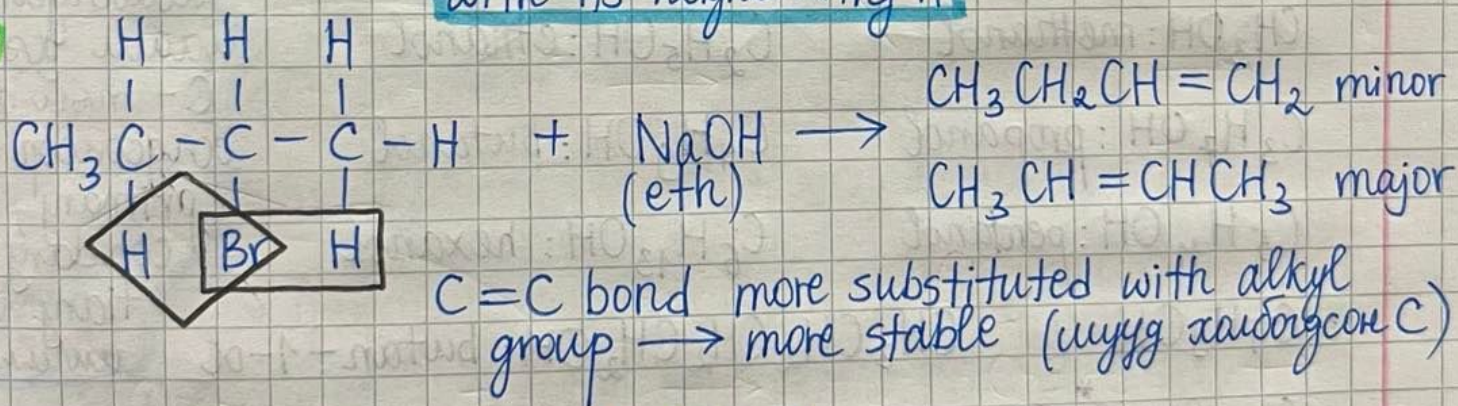 H H H
CH₃ C – C – C – H + NaOH →
(eth)
H Br H
CH₃ CH₂ CH = CH₂ minor
CH₃ CH = CH CH₃ major
C=C bond more substituted with alkyl
group → more stable (шууд холбогдсон C)